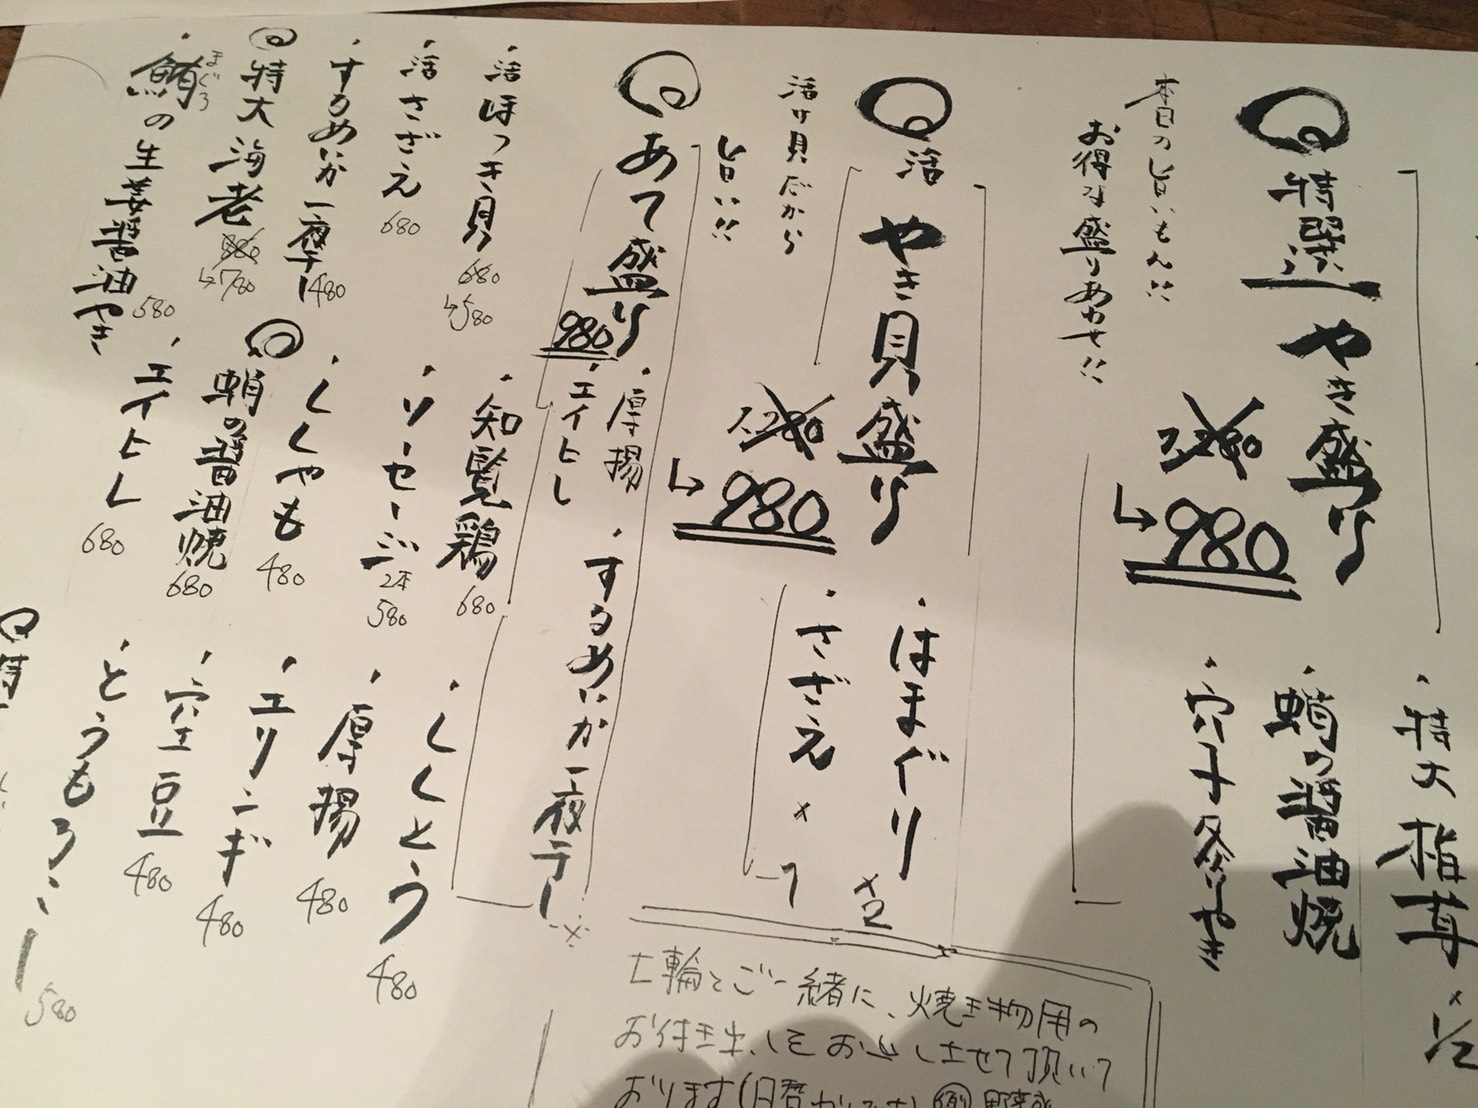 特選 やき盛り
本日の旨いもん!!
お得な盛りあわせ!!
↳980
・特大椎茸 ×1/2
・蛸の醤油焼
・穴子炙りやき
活 やき貝盛り
活け貝だから
旨い!!
1,280
↳980
・はまぐり ×2
・さざえ ×1
あて盛り
980
・厚揚
・エイヒレ
・するめいか一夜干し
・活ほっき貝 680
↳580
・活さざえ 680
・するめいか一夜干し 480
特大海老 880
↳780
・鮪の生姜醤油やき 580
まぐろ
・知覧鶏 680
・ソーセージ 2本 580
・ししゃも 480
・蛸の醤油焼 680
・エイヒレ 680
・ししとう 480
・厚揚 480
・エリンギ 480
・空豆 480
・とうもろこし 580
七輪とご一緒に、焼き物用の
お付き出しをお出しさせて頂いて
おります(日替